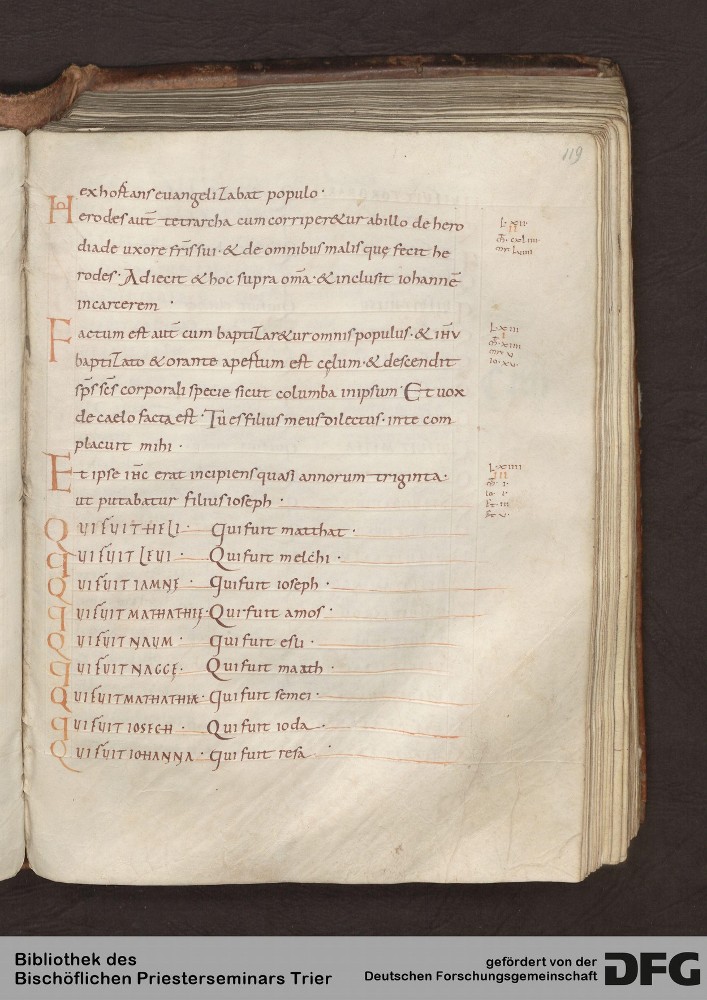 119
exhortans euangelizabat populo·
Herodes aut̄ tetrarcha cum corriperetur ab illo de hero
diade uxore fr̄is sui·& de omnibus malis quę fecit he
rodes· Adiecit & hoc supra om̄a·& inclusit iohannē
in carcerem·
Factum est aut̄ cum baptizaretur omnis populus·& ih̄u
baptizato & orante apertum est cęlum·& descendit
sp̄s sc̄s corporali specie sicut columba in ipsum· Et uox
de caelo facta est· Tu es filius meus dilectus· in te com
placuit mihi·
Et ipse ih̄c erat incipiens quasi annorum triginta·
ut putabatur filius ioseph·
QUI FUIT HELI· Qui fuit matthat·
QUI FUIT LEUI· Qui fuit melchi·
QUI FUIT IAMNE· Qui fuit ioseph·
QUI FUIT MATHATHIĘ· Qui fuit amos·
QUI FUIT NAUM· Qui fuit esli·
QUI FUIT NAGGĘ· Qui fuit maath·
QUI FUIT MATHATHIĘ· Qui fuit semei·
QUI FUIT IOSECH· Qui fuit ioda·
QUI FUIT IOHANNA· Qui fuit resa·
L· XII·
II
L· XIII
I
m̄· XIIII
mr· V
io· XV·
L· XIIII
III
m̄· I·
io· I·
Bibliothek des
Bischöflichen Priesterseminars Trier
gefördert von der
Deutschen Forschungsgemeinschaft
DFG